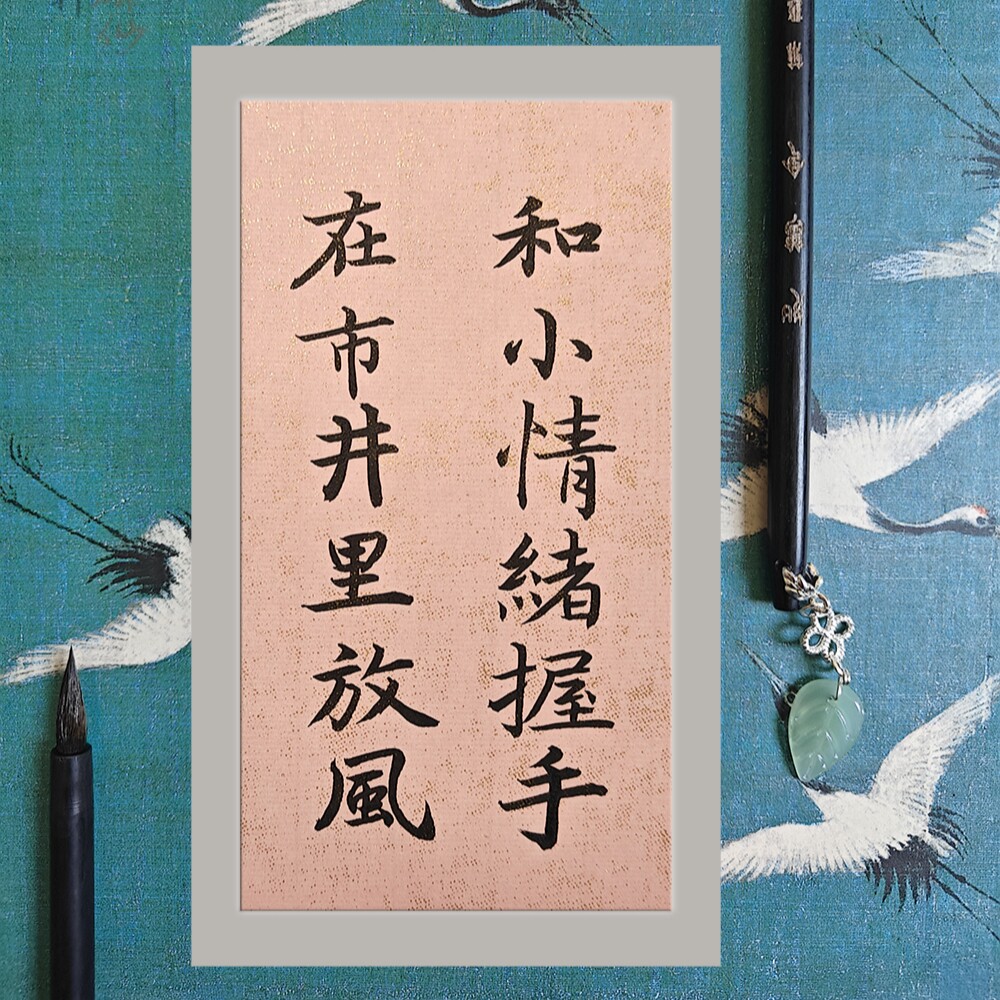 和小情緒握手
在市井里放風